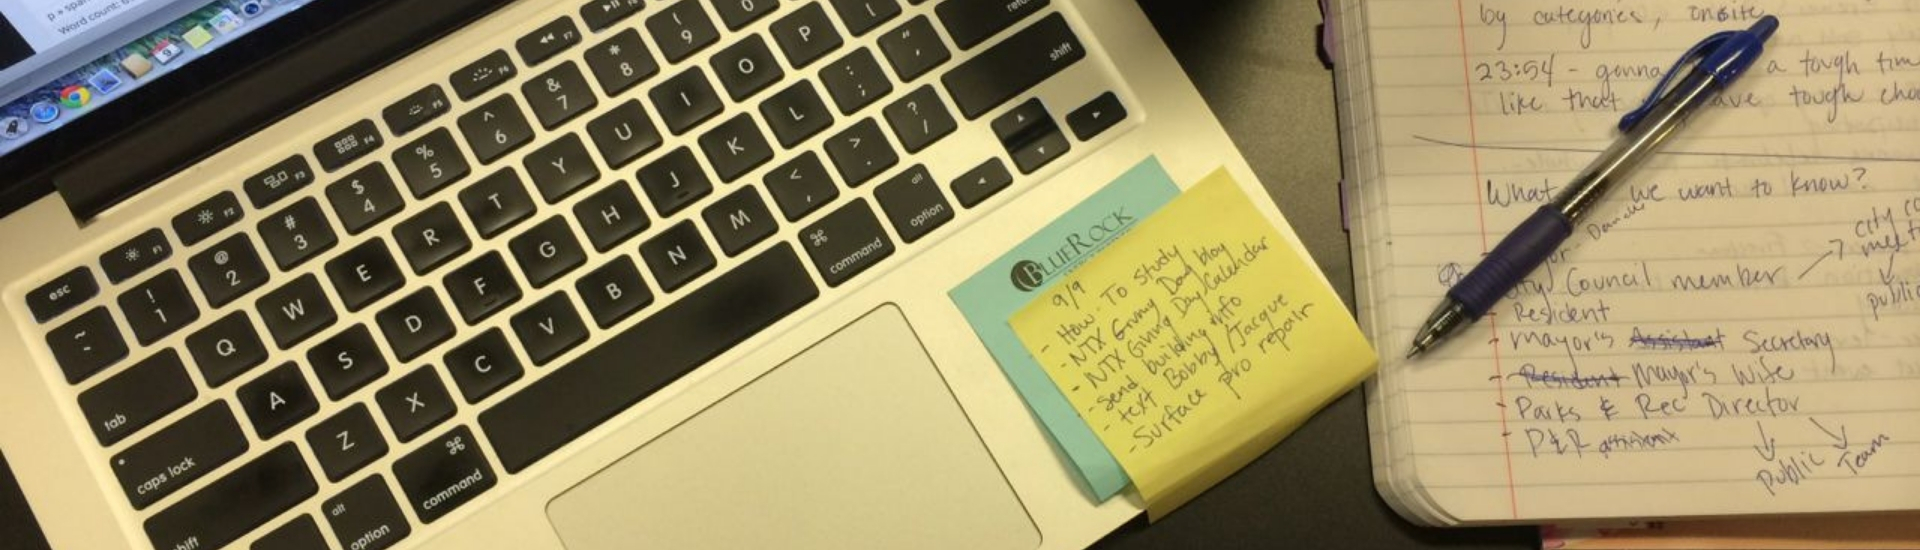 p ▸ span
Word count: 6
esc
F1
F2
F3
F4
F5
F6
F7
~ `
! 1
@ 2
# 3
$ 4
% 5
^ 6
& 7
* 8
( 9
) 0
tab
Q W E R T Y U I O P
caps lock
A S D F G H J K L : ; " '
shift
Z X C V B N M < , > . ? /
shift
alt option
⌘ command
⌘ command
alt option
BLUEROCK
9/9
- How-To Study
- NTX Giving Day blog
- NTX Giving Day Calendar
- Send building info
- text Bobby/Jacque
- Surface pro repair
by categories, onsite
23:54 - gonna a tough time
like that have tough
What we want to know?
City Council member → city
public
- Resident
- Mayor's Assistant Secretary
- Resident Mayor's Wife
- Parks & Rec Director
- P&R assistant
public Team